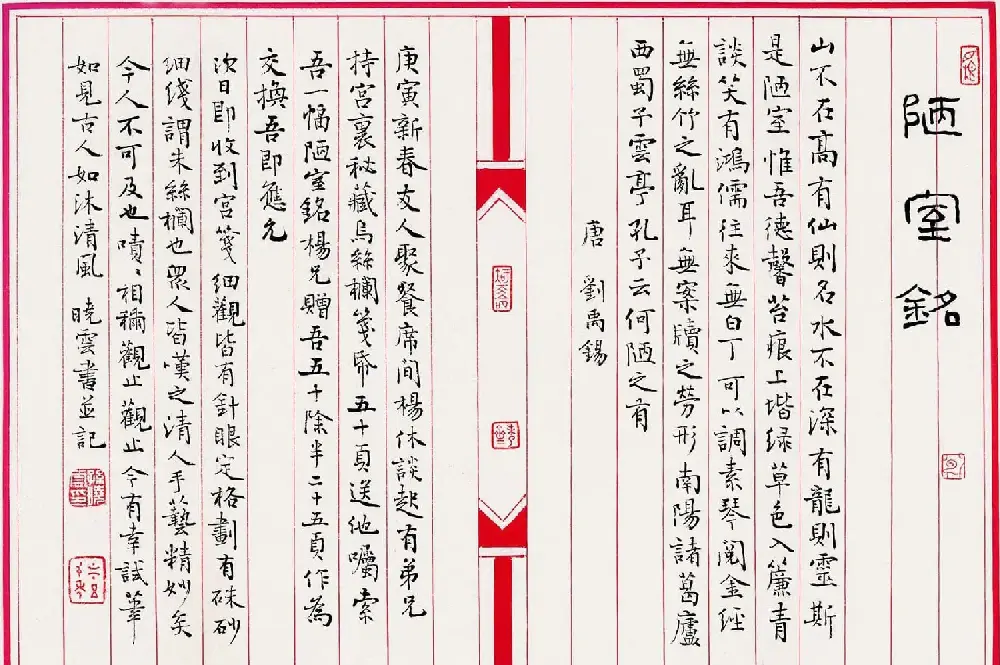 陋室銘
山不在高有仙則名水不在深有龍則靈斯
是陋室惟吾德馨苔痕上堦绿草色入簾青
談笑有鴻儒往來無白丁可以調素琴閱金經
無絲竹之亂耳無案牘之勞形南陽諸葛廬
西蜀子雲亭孔子云何陋之有
唐 劉禹錫
庚寅新春友人聚餐席间楊休談起有弟兄
持宫裏秘藏烏絲欄箋帋五十頁送他囑索
吾一幅陋室銘楊兄贈吾五十除半二十五頁作為
交換吾即應允
次日即收到宫箋细觀皆有針眼定格劃有硃砂
细綫謂朱絲欄也衆人皆嘆之清人手藝精妙矣
今人不可及也嘖〻相稱觀止觀止今有幸試筆
如見古人如沐清風 曉雲書並記